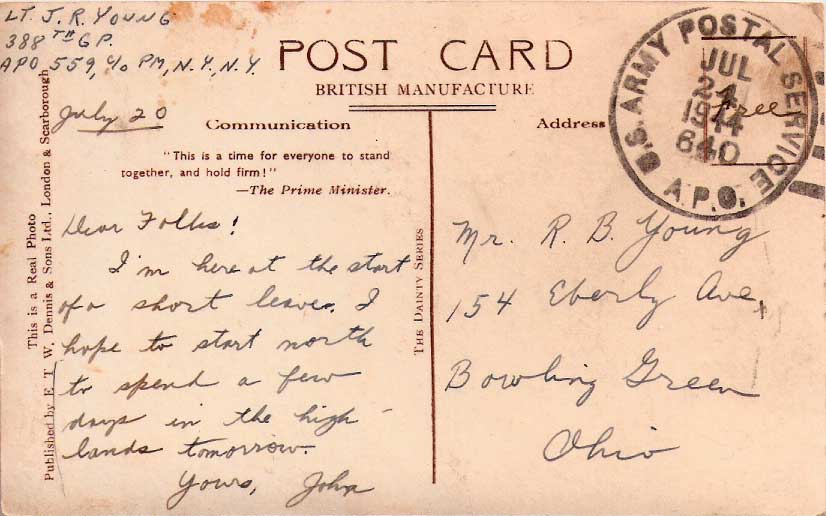 LT. J. R. YOUNG
388TH GP.
APO 559, c/o PM, N.Y., N.Y.
July 20
POST CARD
BRITISH MANUFACTURE
Communication
Address
"This is a time for everyone to stand
together, and hold firm!"
—The Prime Minister.
Dear Folks!
I'm here at the start
of a short leave. I
hope to start north
to spend a few
days in the high-
lands tomorrow.
Yours, John
This is a Real Photo
Published by E. T. W. Dennis & Sons Ltd., London & Scarborough
THE DAINTY SERIES
U.S. ARMY POSTAL SERVICE
A.P.O.
JUL
24
1944
640
Free
Mr. R. B. Young
154 Eberly Ave,
Bowling Green
Ohio